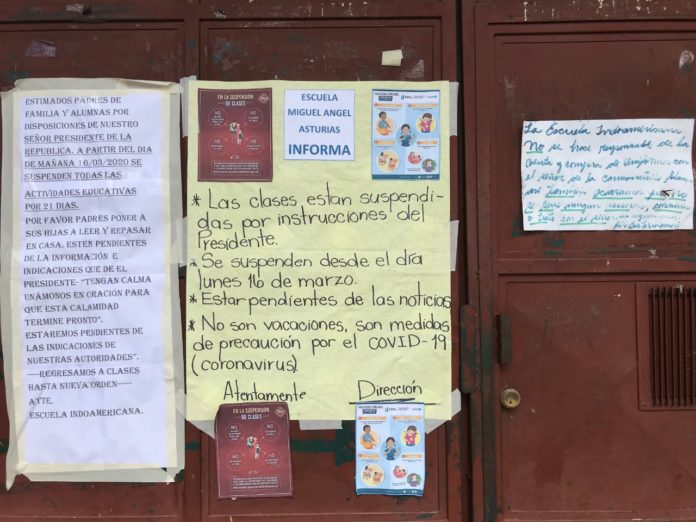 ESTIMADOS PADRES DE
FAMILIA Y ALUMNAS POR
DISPOSICIONES DE NUESTRO
SEÑOR PRESIDENTE DE LA
REPUBLICA. A PARTIR DEL DIA
DE MAÑANA 16/03/2020 SE
SUSPENDEN TODAS LAS
ACTIVIDADES EDUCATIVAS
POR 21 DIAS.
POR FAVOR PADRES PONER A
SUS HIJAS A LEER Y REPASAR
EN CASA. ESTEN PENDIENTES
DE LA INFORMACIÓN E
INDICACIONES QUE DE EL
PRESIDENTE- "TENGAN CALMA
UNÁMONOS EN ORACIÓN PARA
QUE ESTA CALAMIDAD
TERMINE PRONTO".
ESTAREMOS PENDIENTES DE
LAS INDICACIONES DE
NUESTRAS AUTORIDADES".
----REGRESAMOS A CLASES
HASTA NUEVA ORDEN-----
ATTE.
ESCUELA INDOAMERICANA.
EN LA SUSPENSIÓN
DE CLASES
NO
NO
NO
NO
SI
ESCUELA
MIGUEL ANGEL
ASTURIAS
INFORMA
* Las clases estan suspendi-
das por instrucciones del
Presidente.
* Se suspenden desde el día
lunes 16 de marzo.
* Estar pendientes de las noticias
* No son vacaciones, son medidas
de precaución por el COVID-19
(coronavirus)
Atentamente Dirección
EN LA SUSPENSIÓN
DE CLASES
NO
NO
NO
NO
SI
La Escuela Indoamericana
No se hace responsable de la
venta y compra de Uniformes con
el señor de la